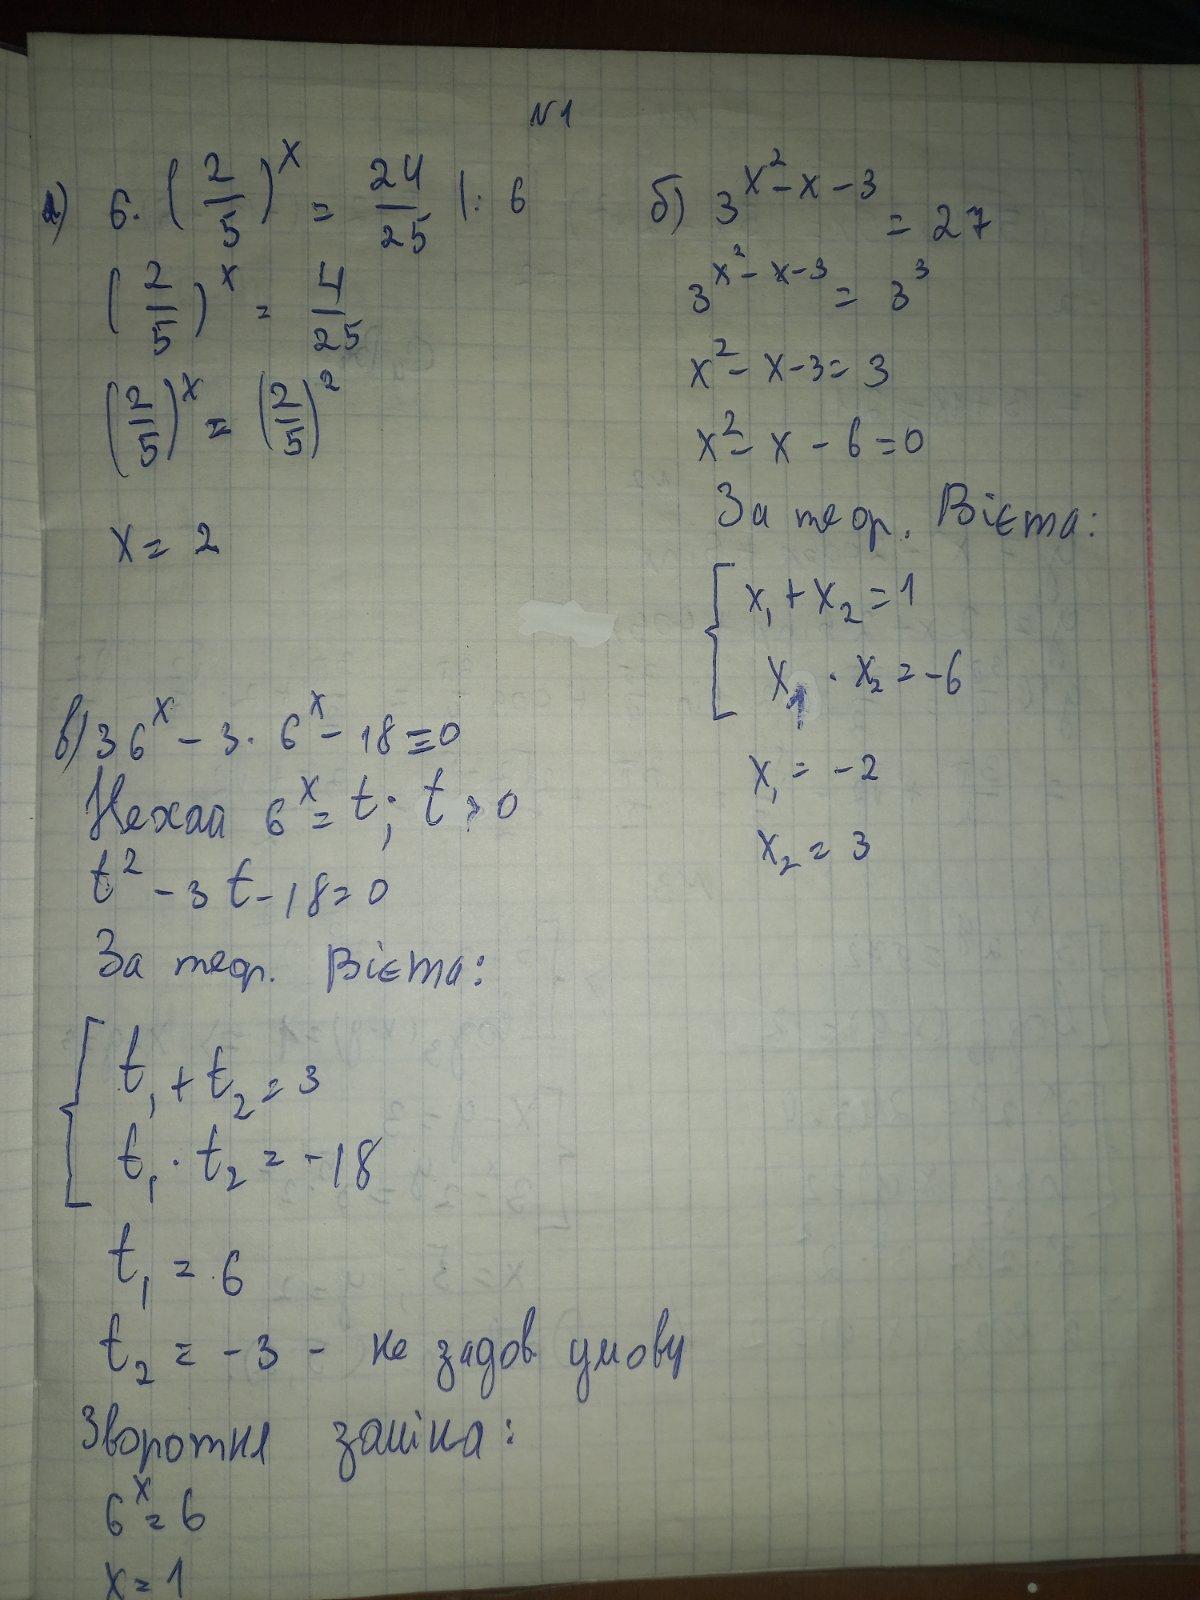 №1
а) 6 · (2/5)^x = 24/25 |: 6
(2/5)^x = 4/25
(2/5)^x = (2/5)^2
x = 2
б) 3^(x^2 - x - 3) = 27
3^(x^2 - x - 3) = 3^3
x^2 - x - 3 = 3
x^2 - x - 6 = 0
За теор. Вієта:
x₁ + x₂ = 1
x₁ · x₂ = -6
x₁ = -2
x₂ = 3
в) 36^x - 3 · 6^x - 18 = 0
Нехай 6^x = t; t > 0
t^2 - 3t - 18 = 0
За теор. Вієта:
t₁ + t₂ = 3
t₁ · t₂ = -18
t₁ = 6
t₂ = -3 - не задов умову
Зворотня заміна:
6^x = 6
x = 1